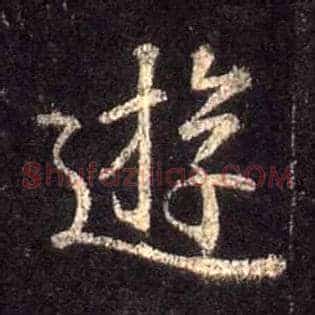 遊
Shufazidian.COM